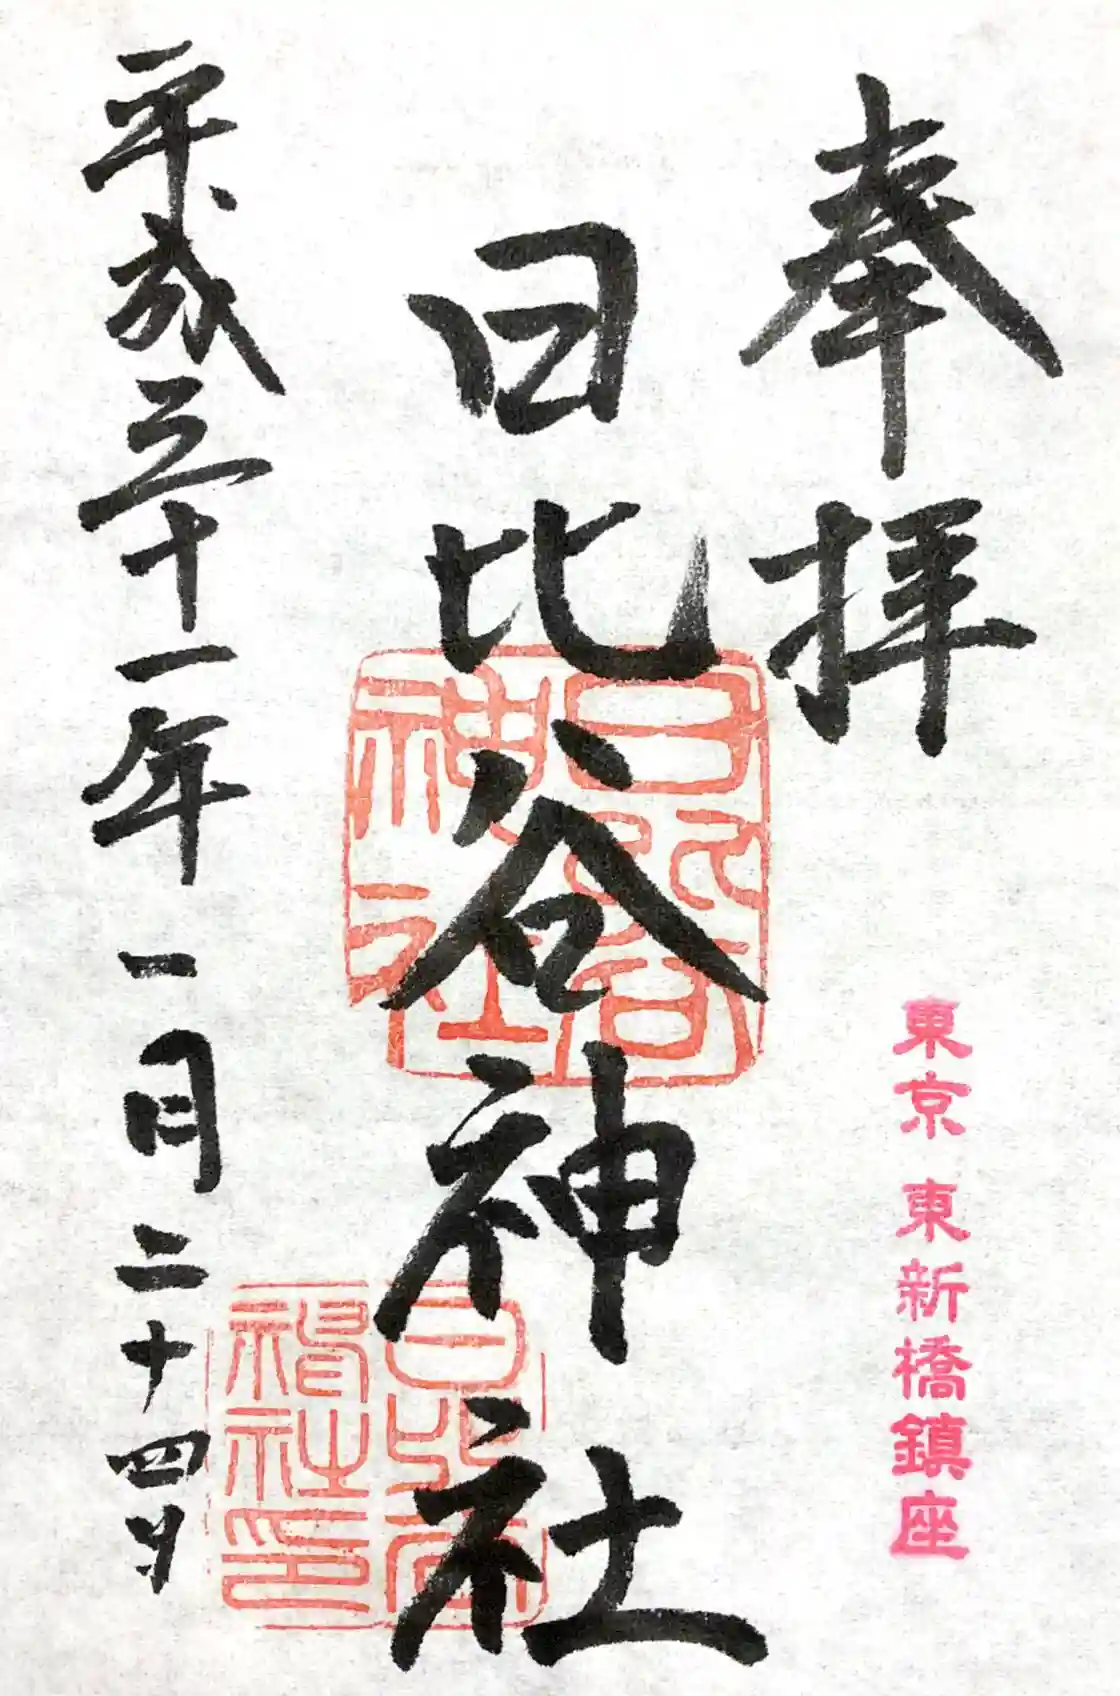 奉拝
東京 東新橋鎮座
日比谷神社
日比谷神社
日比谷神社印
平成三十一年一月二十四日